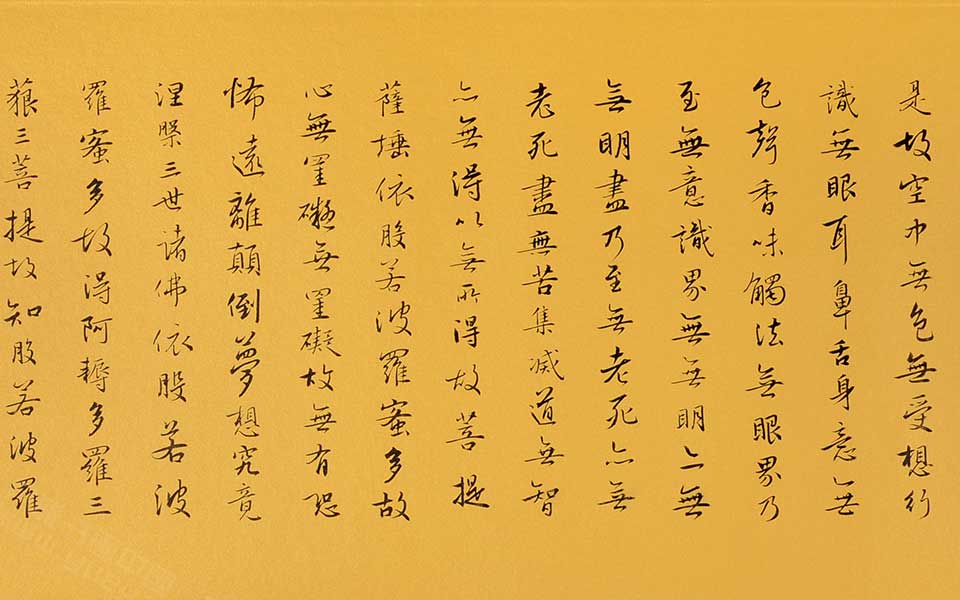 是故空中無色無受想行
識無眼耳鼻舌身意無
色聲香味觸法無眼界乃
至無意識界無無明亦無
無明盡乃至無老死亦無
老死盡無苦集滅道無智
亦無得以無所得故菩提
薩埵依般若波羅蜜多故
心無罣礙無罣礙故無有恐
怖遠離顛倒夢想究竟
涅槃三世諸佛依般若波
羅蜜多故得阿耨多羅三
藐三菩提故知般若波羅